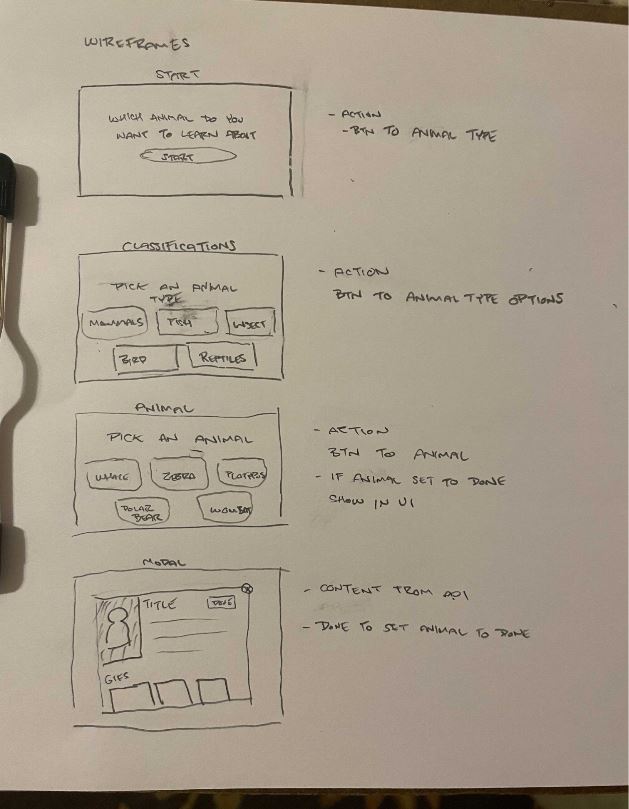 WIREFRAMES
START
WHICH ANIMAL DO YOU
WANT TO LEARN ABOUT
START
- ACTION
- BTN TO ANIMAL TYPE
CLASSIFICATIONS
PICK AN ANIMAL
TYPE
MAMMALS FISH INSECT
BIRD REPTILES
- ACTION
BTN TO ANIMAL TYPE OPTIONS
ANIMAL
PICK AN ANIMAL
WHALE ZEBRA PLATYPUS
POLAR
BEAR WOMBAT
- ACTION
BTN TO ANIMAL
- IF ANIMAL SET TO DONE
SHOW IN UI
MODAL
TITLE DONE
GIFS
- CONTENT FROM API
- DONE TO SET ANIMAL TO DONE